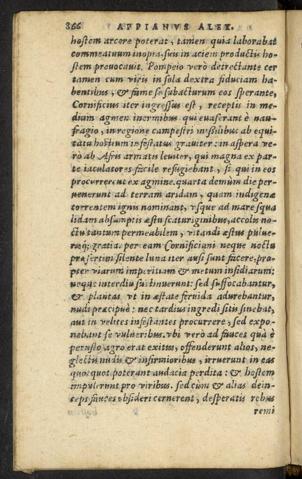 366 APPIANVS ALEX.
hostem arcere poterat, tamen quia laborabat
commeatuum inopia, suis in aciem productis ho-
stem prouocauit. Pompeio verò detrectante cer
tamen cum viris in sola dextra fiduciam ha-
bentibus, & fame se subacturum eos sperante,
Cornificius iter ingressus est, receptis in me-
dium agmen inermibus qui euaserant è nau-
fragio, in regione campestri missilibus ab equi-
tatu hostium infestatus grauiter: in aspera ve-
rò ab Afris armatis leuiter, qui magna ex par-
te iaculatores facile refugiebant, si qui in eos
procurrerent ex agmine. quarta demum die per-
uenerunt ad terram aridam, quam indigenæ
torrentem ignis nominant, vsque ad mare squa
lidam absumptis æstu scaturiginibus, accolis no-
ctu tantum permeabilem, vitandi æstus pulue-
risq; gratia. per eam Corniciani neque noctu
præsertim silente luna iter ausi sunt facere, pro-
pter viarum imperitiam & metum insidiarum:
neque interdiu sustinuerunt: sed suffocabantur,
& plantas vt in æstate feruida adurebantur,
nudi præcipuè: nec tardius ingredi sitis sinebat,
aut in velites infestantes procurrere, sed expo-
nebant se vulneribus. vbi verò ad fauces quà è
perusto agro erat exitus, offenderunt alios, ne-
glectis nudis & infirmioribus, irruerunt in eas
quotquot poterant audacia perdita: & hostem
impulerunt pro viribus. sed cùm & alias dein-
ceps fauces obsideri cernerent, desperatis rebus
remi